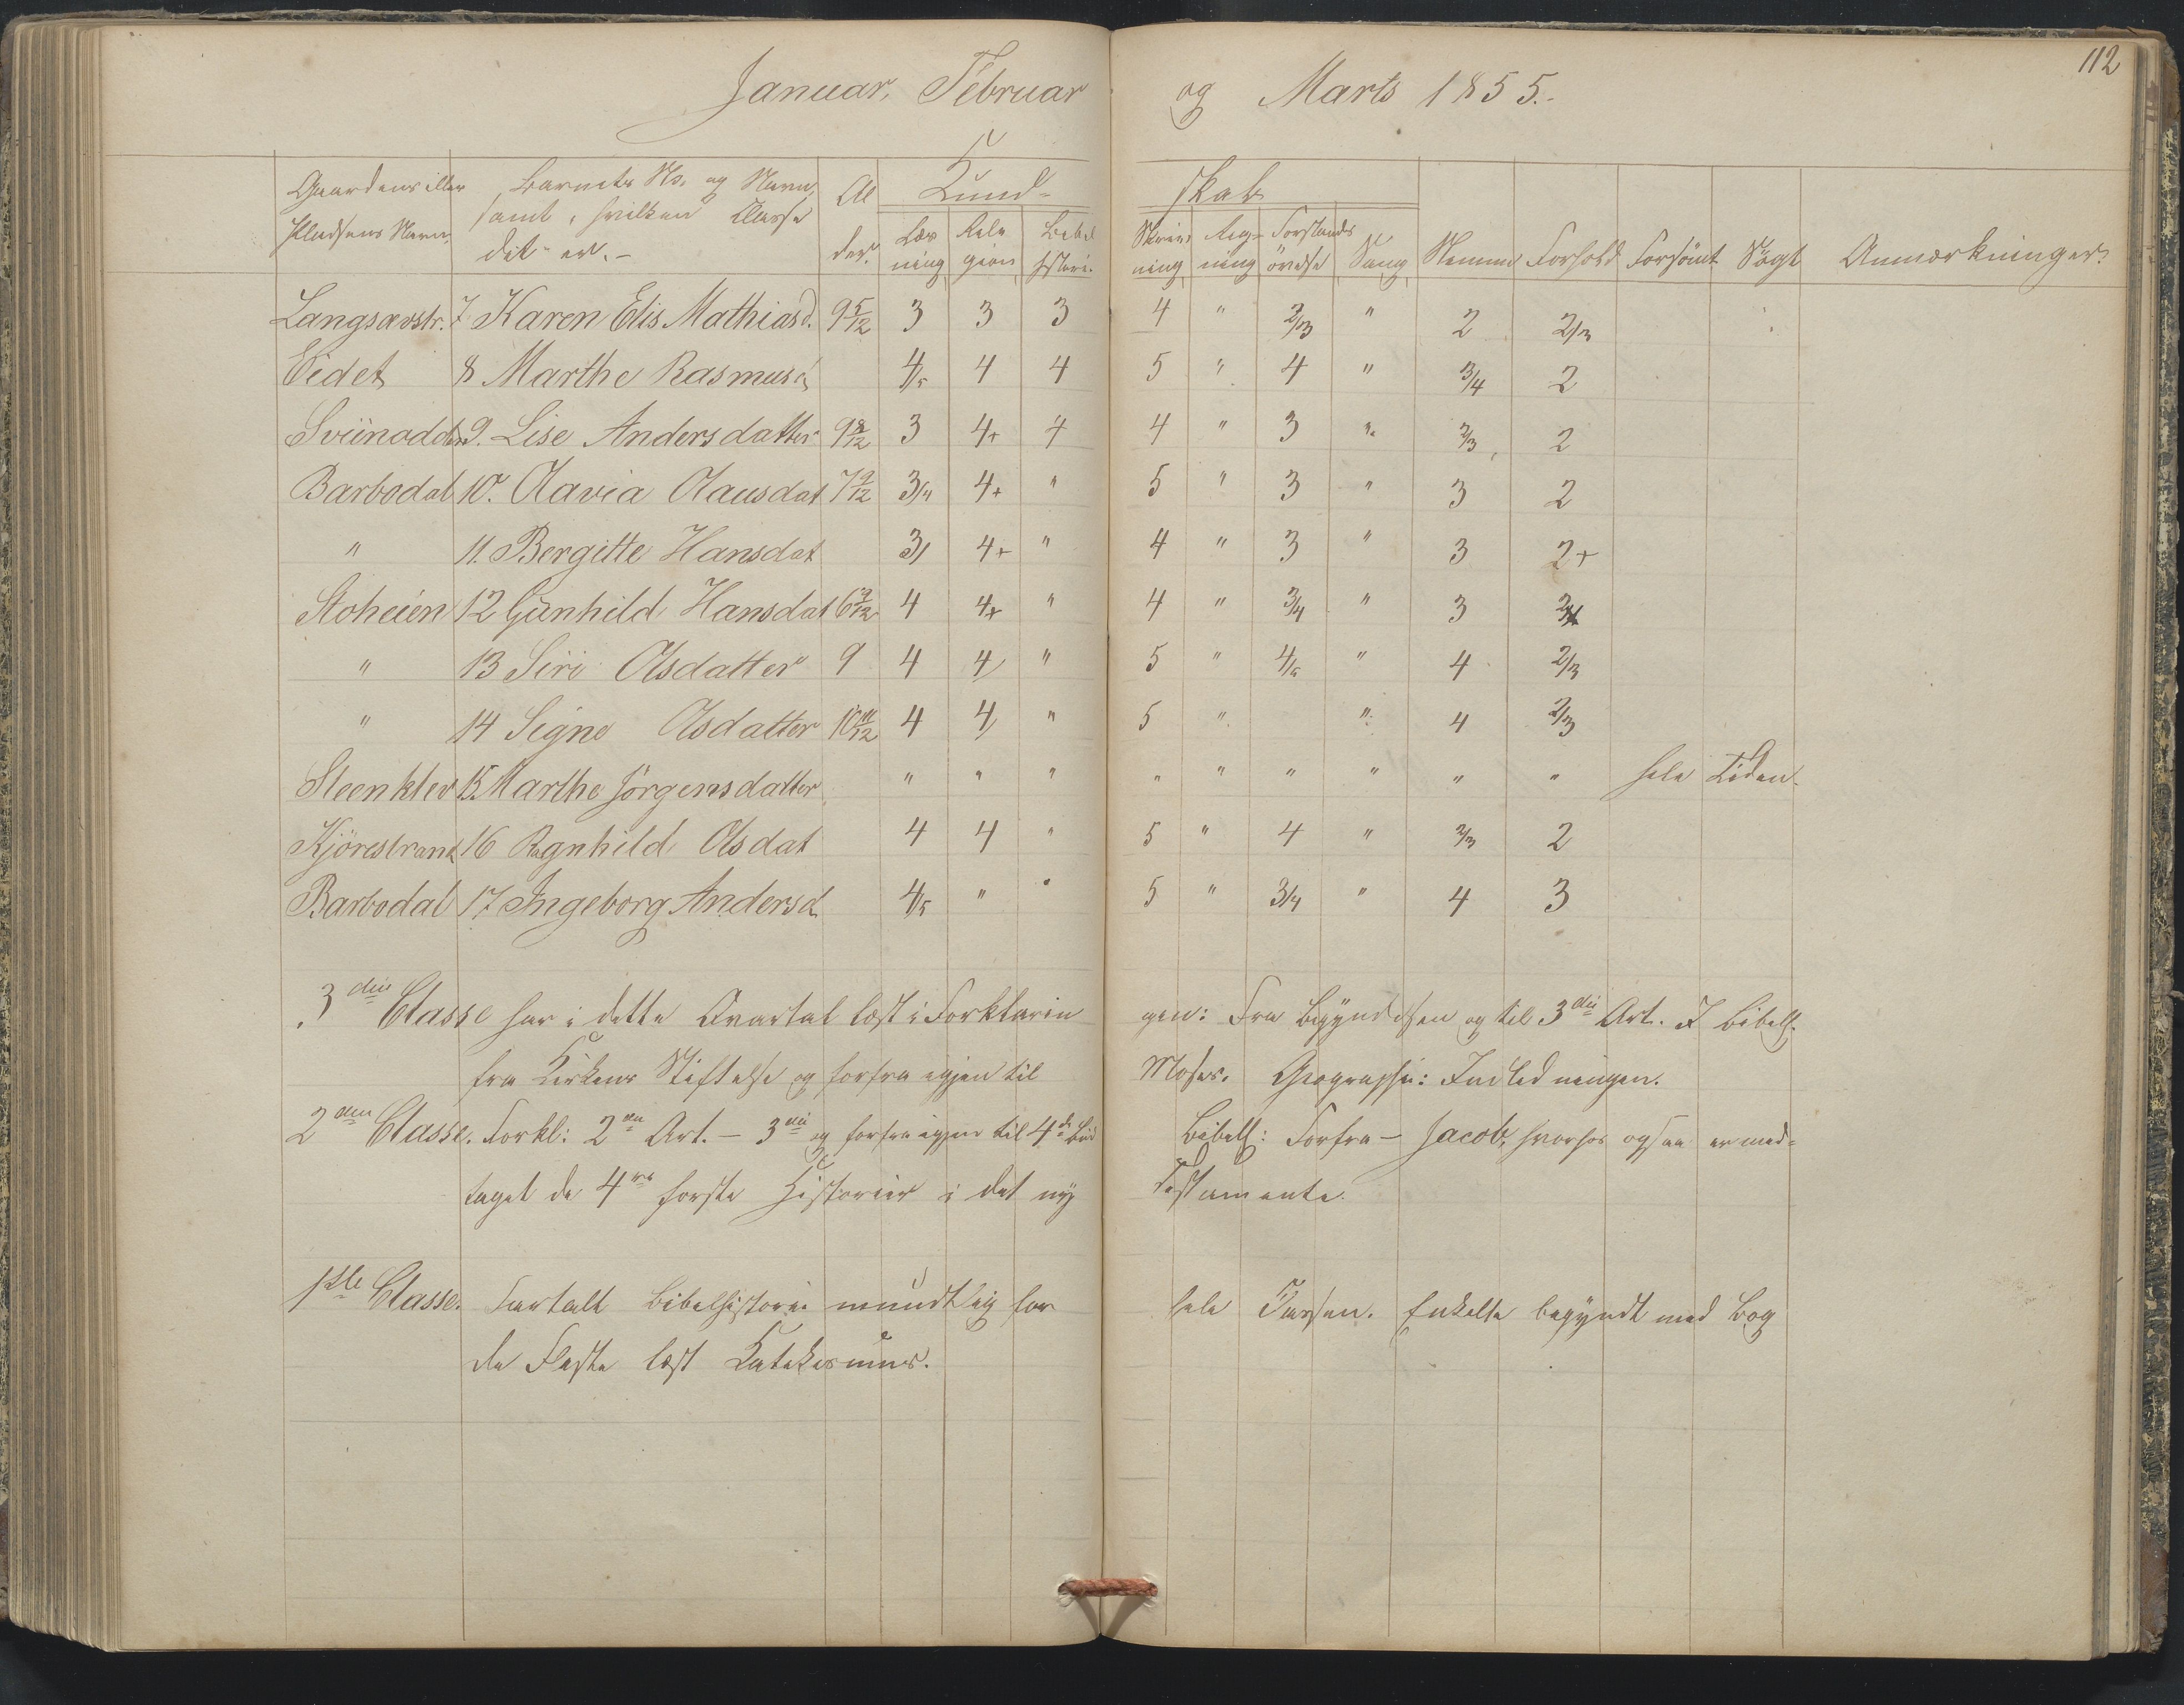 112
Januar, Februar og Marts 1855.
Gaardens eller Pladsens Navn. Barnets No. og Navn, samt, hvilken Classe det er.- Alder. Kundskab Nemme Forhold Forsömt Sögt Anmærkninger.
Læsning Religion Bibelhistori. Skrivning Regning Forstandsövelse Sang
Langsævstr. 7 Karen Elis Mathiasd. 9 5/12 3 3 3 4 " 2/3 " 2 2/3
Eidet 8 Marthe Rasmusd 4/5 4 4 5 " 4 " 3/4 2
Sviinodden 9. Lise Andersdatter 9 8/12 3 4+ 4 4 " 3 " 2/3 2
Barbodal 10. Olavia Olausdat 7 9/12 3/4 4+ " 5 " 3 " 3 2
" 11. Bergitte Hansdat 3/ 4+ " 4 " 3 " 3 2+
Stoheien 12 Gunhild Hansdat 6 9/12 4 4+ " 4 " 3/4 " 3
" 13 Siri Olsdatter 9 4 4/ " 5 " 4/5 " 4 2/3
" 14 Signe Olsdatter 10 11/12 4 4/ " 5 " " 4 2/3
Steenklev 15. Marthe Jörgensdatter " " " " " " " " " hele Tiden.
Kjörestrand 16 Ragnhild Olsdat 4 4 " 5 " 4 " 2/3 2
Barbodal 17 Ingeborg Andersd. 4/5 " " 5 " 3/4 " 4 3
3die Classe har i dette Qvartal læst i Forklaringen: Fra Begyndelsen og til 3die Art. I Bibelh.
fra Kirkens Stiftelse og forfra igjen til Moses. Geographi: Indledningen.
2den Classe. Forkl: 2den Art. - 3die og forfra igjen til 4de Bud Bibelh: Forfra - Jacob, hvorhos ogsaa er med-
taget de 4re förste Historier i det ny Testamente.
1ste Classe. Fortalt Bibelhistorie mundtlig for hele Classen. Enkelte begyndt med Bog
de Fleste læst Katekismus.